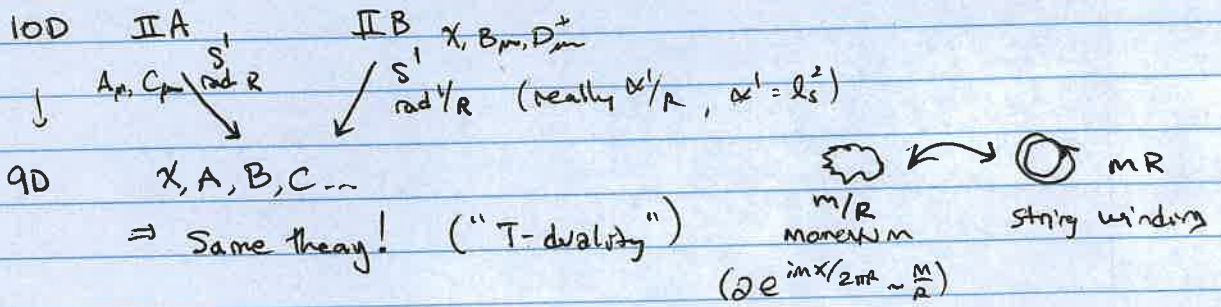 10D IIA IIB χ, Bμν, D⁺μν
Aμ, Cμν S¹ rad R S¹
rad 1/R (really α'/R, α' = ls²)
↓
9D χ, A, B, C...
m/R mR
⇒ Same theory! ("T-duality") momentum string winding
(∂e^{imx/2πR} ~ m/R)